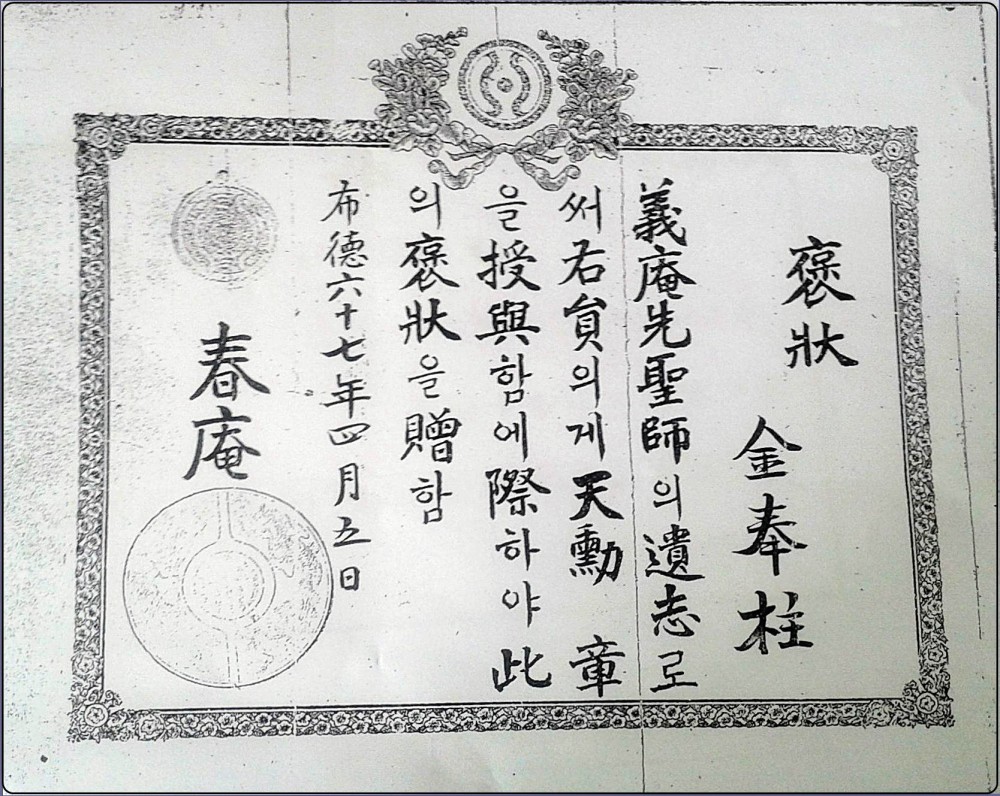 褒狀
金奉柱
義庵先聖師의遺志로
써右員의게天勳 章
을授與함에際하야此
의褒狀을贈함
布德六十七年四月五日
春庵